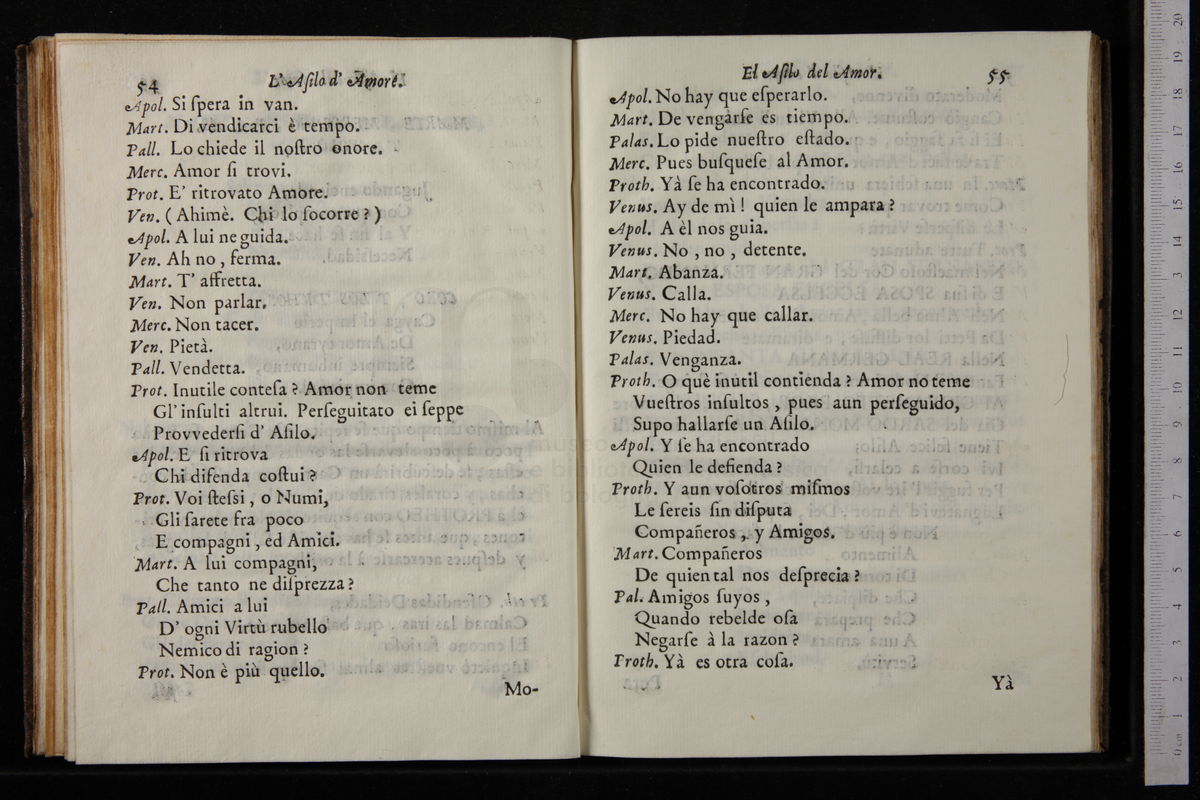 54
L'Aſilo d' Amore.
Apol. Si ſpera in van.
Mart. Di vendicarci è tempo.
Pall. Lo chiede il noſtro onore.
Merc. Amor ſi trovi.
Prot. E' ritrovato Amore.
Ven. ( Ahimè. Chi lo ſocorre ? )
Apol. A lui ne guida.
Ven. Ah no , ferma.
Mart. T' affretta.
Ven. Non parlar.
Merc. Non tacer.
Ven. Pietà.
Pall. Vendetta.
Prot. Inutile conteſa ? Amor non teme
Gl' inſulti altrui. Perſeguitato ei ſeppe
Provvederſi d' Aſilo.
Apol. E ſi ritrova
Chi difenda coſtui ?
Prot. Voi ſteſsi , o Numi,
Gli ſarete fra poco
E compagni , ed Amici.
Mart. A lui compagni,
Che tanto ne diſprezza ?
Pall. Amici a lui
D' ogni Virtù rubello
Nemico di ragion ?
Prot. Non è più quello.
Mo-
El Aſilo del Amor.
55
Apol. No hay que eſperarlo.
Mart. De vengarſe es tiempo.
Palas. Lo pide nueſtro eſtado.
Merc. Pues buſqueſe al Amor.
Proth. Yà ſe ha encontrado.
Venus. Ay de mì ! quien le ampara ?
Apol. A èl nos guia.
Venus. No , no , detente.
Mart. Abanza.
Venus. Calla.
Merc. No hay que callar.
Venus. Piedad.
Palas. Venganza.
Proth. O què inutil contienda ? Amor no teme
Vueſtros inſultos , pues aun perſeguido,
Supo hallarſe un Aſilo.
Apol. Y ſe ha encontrado
Quien le defienda ?
Proth. Y aun voſotros miſmos
Le ſereis ſin diſputa
Compañeros , y Amigos.
Mart. Compañeros
De quien tal nos deſprecia ?
Pal. Amigos ſuyos ,
Quando rebelde oſa
Negarſe à la razon ?
Proth. Yà es otra coſa.
Yà
0 cm 1 2 3 4 5 6 7 8 9 10 11 12 13 14 15 16 17 18 19 20